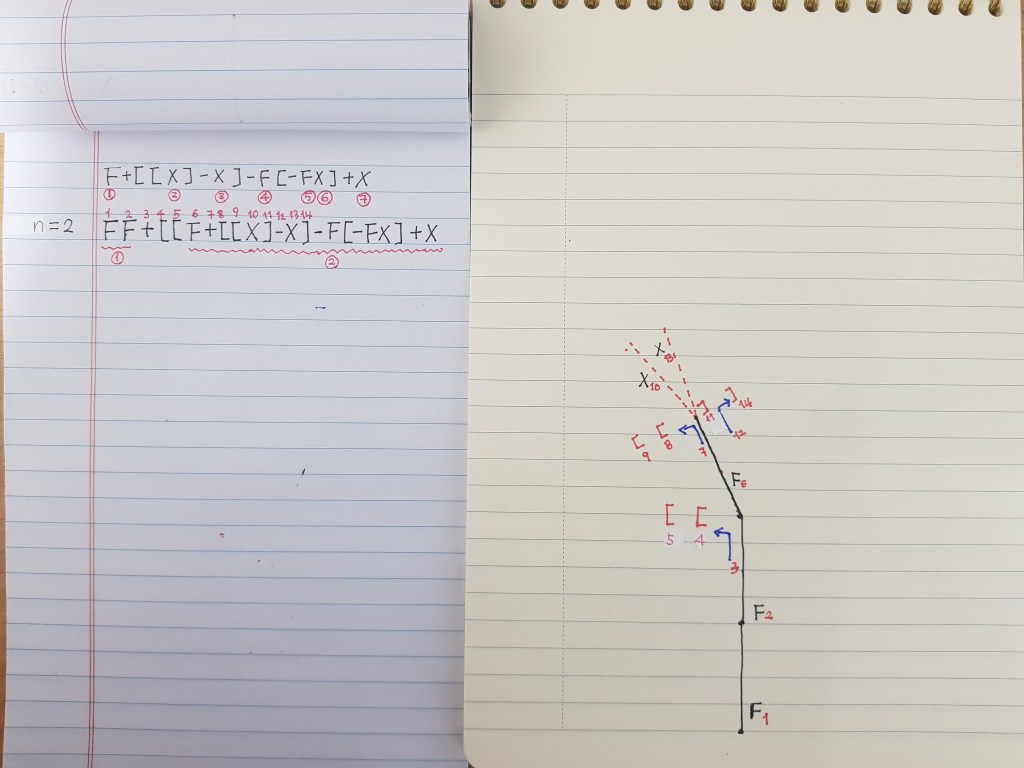 F+[[X]-X]-F[-FX]+X
① ② ③ ④ ⑤ ⑥ ⑦
1 2 3 4 5 6 7 8 9 10 11 12 13 14
n=2 FF+[[F+[[X]-X]-F[-FX]+X
① ②
X13
X10
] 14
] 11
12
[ 9
[ 8
7
F6
[ 5
[ 4
3
F2
F1